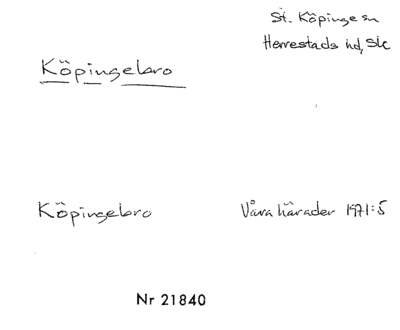 St. Köpinge sn
Herrestads hd, Sk
Köpingebro
Köpingebro
Våra härader 1971:5
Nr 21840